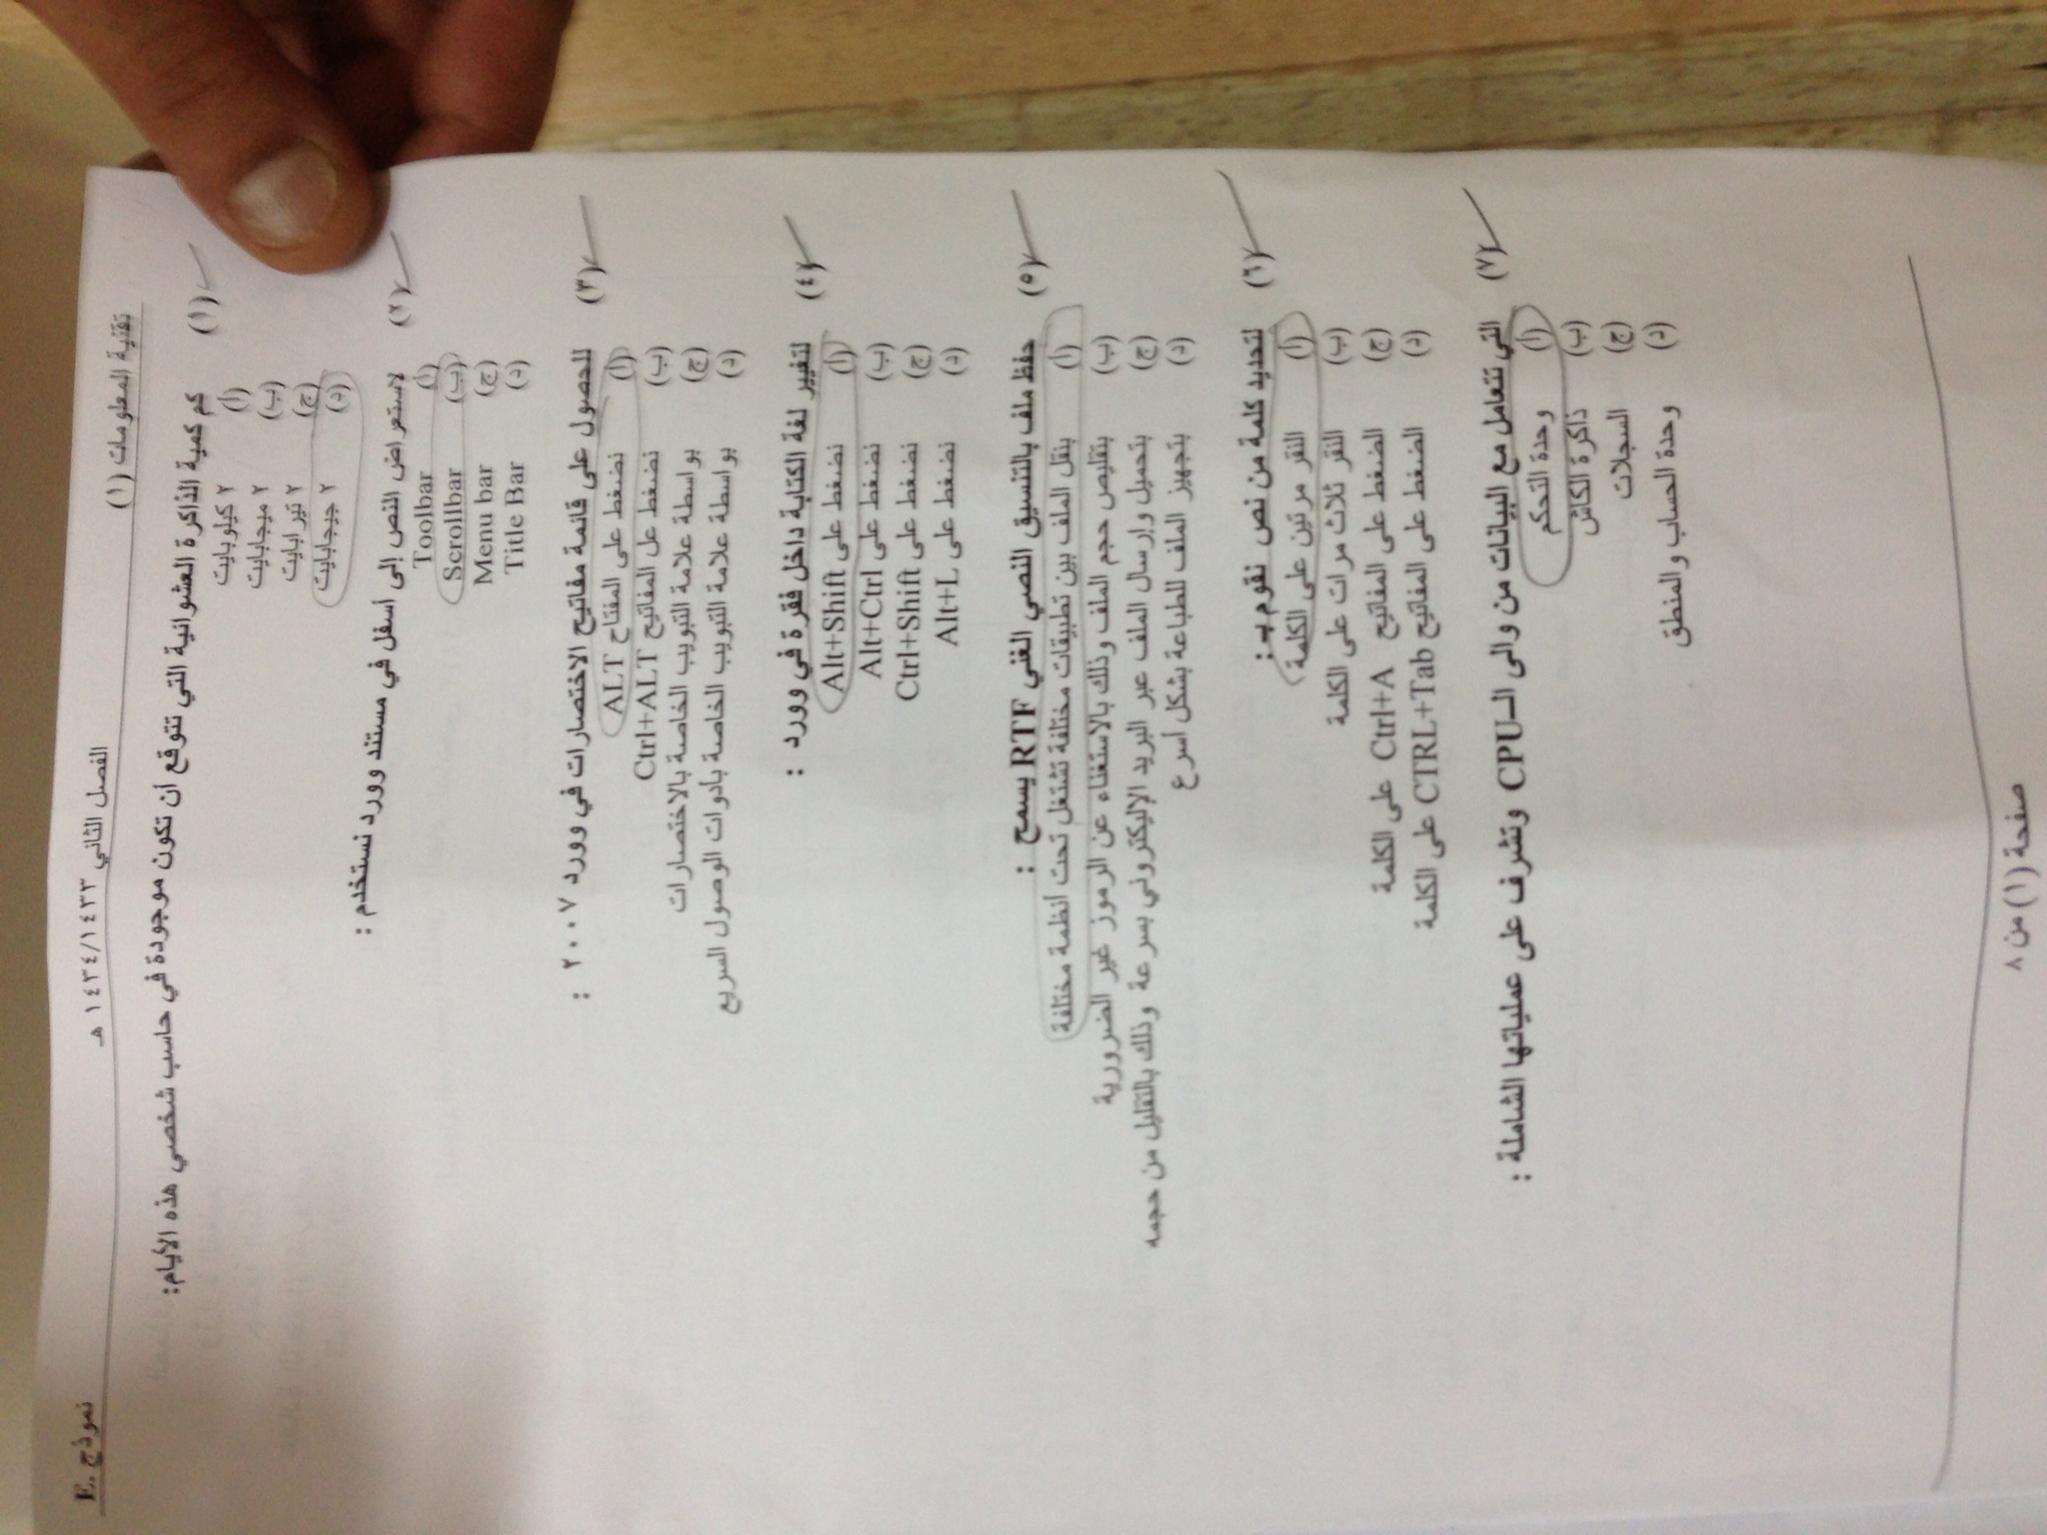 تقنية المعلومات (١) الفصل الثاني ١٤٣٤/١٤٣٣ هـ نموذج E.
(١) كم كمية الذاكرة العشوائية التي تتوقع أن تكون موجودة في حاسب شخصي هذه الأيام:
(أ) ٢ كيلوبايت
(ب) ٢ ميجابايت
(ج) ٢ تيرابايت
(د) ٢ جيجابايت
(٢) لاستعراض النص إلى أسفل في مستند وورد نستخدم :
(أ) Toolbar
(ب) Scrollbar
(ج) Menu bar
(د) Title Bar
(٣) للحصول على قائمة مفاتيح الاختصارات في وورد ٢٠٠٧ :
(أ) نضغط على المفتاح ALT
(ب) نضغط عل المفاتيح Ctrl+ALT
(ج) بواسطة علامة التبويب الخاصة بالاختصارات
(د) بواسطة علامة التبويب الخاصة بأدوات الوصول السريع
(٤) لتغيير لغة الكتابة داخل فقرة في وورد :
(أ) نضغط على Alt+Shift
(ب) نضغط على Alt+Ctrl
(ج) نضغط على Ctrl+Shift
(د) نضغط على Alt+L
(٥) حفظ ملف بالتنسيق النصي الغني RTF يسمح :
(أ) بنقل الملف بين تطبيقات مختلفة تشتغل تحت أنظمة مختلفة
(ب) بتقليص حجم الملف وذلك بالاستغناء عن الرموز غير الضرورية
(ج) بتحميل وإرسال الملف عبر البريد الإليكتروني بسرعة وذلك بالتقليل من حجمه
(د) بتجهيز الملف للطباعة بشكل أسرع
(٦) لتحديد كلمة من نص نقوم بـ :
(أ) النقر مرتين على الكلمة
(ب) النقر ثلاث مرات على الكلمة
(ج) الضغط على المفاتيح Ctrl+A على الكلمة
(د) الضغط على المفاتيح CTRL+Tab على الكلمة
(٧) التي تتعامل مع البيانات من والى الـCPU وتشرف على عملياتها الشاملة :
(أ) وحدة التحكم
(ب) ذاكرة الكاش
(ج) السجلات
(د) وحدة الحساب والمنطق
صفحة (١) من ٨